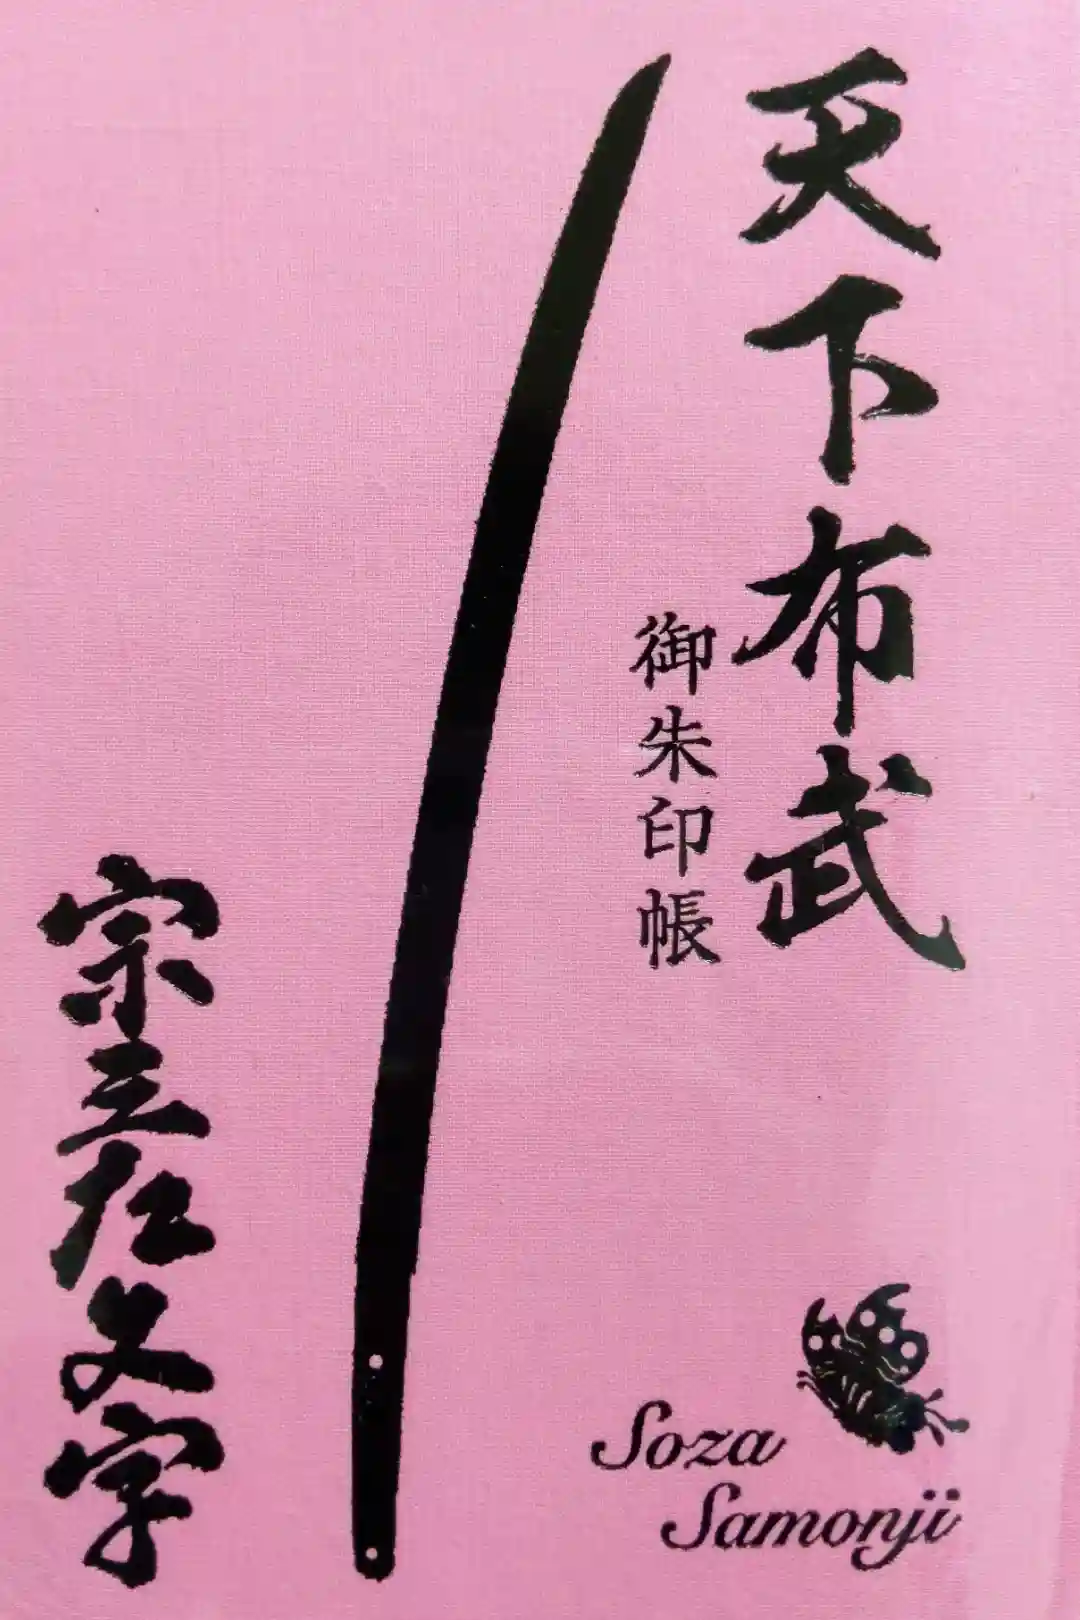 天下布武
御朱印帳
宗三左文字
Soza
Samonji